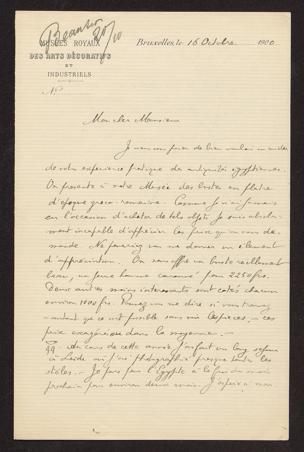 MUSÉES ROYAUX
DES ARTS DÉCORATIFS
ET
INDUSTRIELS
No
Bruxelles, le 16 Octobre 1900
Mon cher Monsieur
Je viens vous prier de bien vouloir
de votre expérience pratique des antiquités égyptiennes.
On présente à notre Musée des bustes en plâtre
d'époque gréco-romaine. Comme je n'ai jamais
eu l'occasion d'acheter de tels objets je suis absolu-
ment incapable d'apprécier les prix qu'on nous de-
mande. Ne pourriez vous me donner un élément
d'appréciation. On nous offre un buste réellement
beau, un jeune homme couronné pour 2250 frs.
Deux autres moins intéressants sont cotés chacun
environ 1000 frs. Pouvez vous me dire si vous trouvez
- autant que ce soit possible sans voir les pièces - ces
prix exagérés dans la moyenne. -
Au cours de cette année j'ai fait un long séjour
à Leide où j'ai photographié presque toutes les
stèles. - Je pars pour l'Égypte à la fin du mois
prochain pour environ deux mois. J'espère